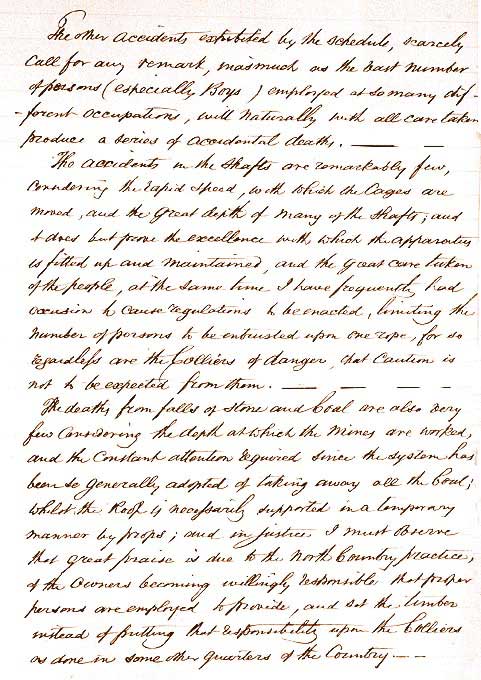 The other accidents exhibited by the schedule, scarcely
Call for any remark, inasmuch as the vast number
of persons (especially Boys) employed at so many dif-
-ferent occupations, will naturally with all care taken
produce a series of accidental deaths. — — —
The accidents in the Shafts are remarkably few,
considering the rapid speed, with which the Cages are
moved, and the great depth of many of the Shafts; and
it does but prove the excellence with which the apparatus
is fitted up and maintained, and the great care taken
of the people, at the same time I have frequently had
occasion to cause regulations to be enacted, limiting the
number of persons to be entrusted upon one rope, for so
regardless are the Colliers of danger, that Caution is
not to be expected from them. — — — —
The deaths from falls of Stone and Coal are also very
few Considering the depth at which the Mines are worked,
and the Constant attention required since the system has
been so generally adopted of taking away all the Coal;
whilst the Roof is necessarily supported in a temporary
manner by props; and in justice I must observe
that great praise is due to the North Country practice,
of the Owners becoming willingly responsible that proper
persons are employed to provide, and set the timber
instead of putting that responsibility upon the Colliers
as done in some other quarters of the Country — —